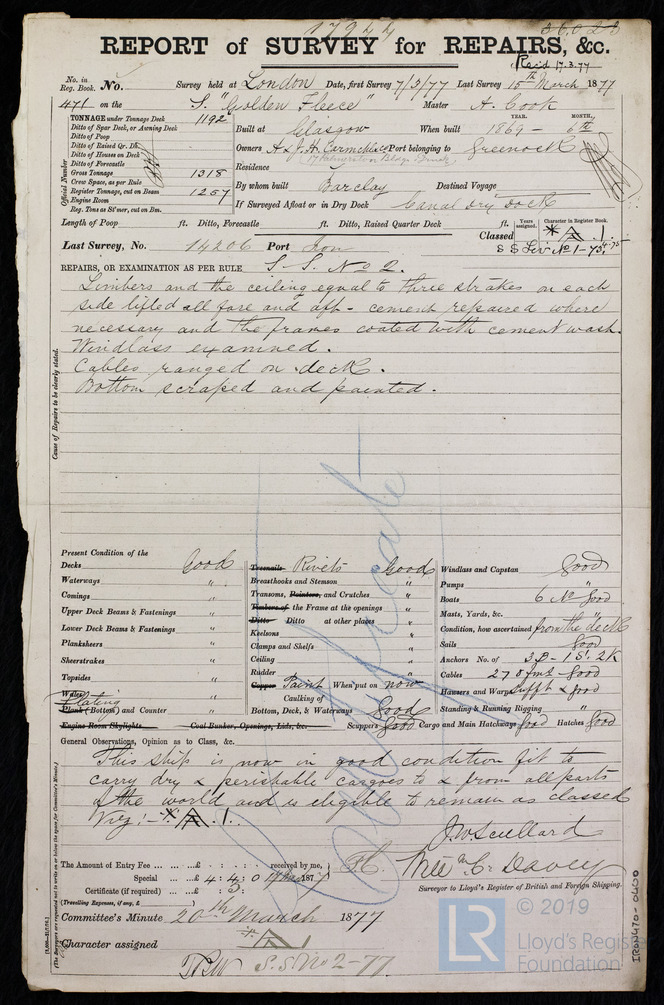 17944
36023
REPORT of SURVEY for REPAIRS, &c.
Rec'd 17.3.77
No. in Reg. Book. No. Survey held at London Date, first Survey 7/3/77 Last Survey 15th March 1877
471 on the S. "Golden Fleece" Master A. Cook
TONNAGE under Tonnage Deck 1192
Ditto of Spar Deck, or Awning Deck
Ditto of Poop
Ditto of Raised Qr. Dk.
Ditto of Houses on Deck
Ditto of Forecastle
Gross Tonnage 1318
Crew Space, as per Rule
Register Tonnage, cut on Beam 1257
Engine Room
Reg. Tons as St'mer, cut on Bm.
Official Number
YEAR. MONTH.
Built at Glasgow When built 1869 - 6th
Owners A & J. H. Carmichael & Co Port belonging to Greenock
Residence
By whom built Barclay Destined Voyage
If Surveyed Afloat or in Dry Dock Canal dry dock
Length of Poop ft. Ditto, Forecastle ft. Ditto, Raised Quarter Deck ft.
Years assigned. Character in Register Book.
Classed A 1.
S S Liv No 1-73. 4-75
Last Survey, No. 14206 Port Lon
REPAIRS, OR EXAMINATION AS PER RULE S.S. No 2.
Limbers and the ceiling equal to three strakes on each
side lifted all fore and aft - cement repaired where
necessary and the frames coated with cement wash.
Windlass examined.
Cables ranged on deck.
Bottom scraped and painted.
Cause of Repairs to be clearly stated.
Certificate
Present Condition of the
Decks Good
Waterways "
Comings "
Upper Deck Beams & Fastenings "
Lower Deck Beams & Fastenings "
Planksheers "
Sheerstrakes "
Topsides "
Wales "
Plating
Plank (Bottom) and Counter "
Engine Room Skylights Coal Bunker, Openings, Lids, &c.
Treenails Rivets Good
Breasthooks and Stemson "
Transoms, Pointers, and Crutches "
Timbers of the Frame at the openings "
Ditto Ditto at other places "
Keelsons "
Clamps and Shelfs "
Ceiling "
Rudder "
Copper Paint When put on now
Caulking of
Bottom, Deck, & Waterways Good
Scuppers Good Cargo and Main Hatchways Good Hatches Good
Windlass and Capstan Good
Pumps "
Boats 6 No Good
Masts, Yards, &c. "
Condition, how ascertained from the deck
Sails Good
Anchors No. of 3 B - 1 St. 2 K
Cables 270 fms - Good
Hawsers and Warps Sufft & good
Standing & Running Rigging "
General Observations, Opinion as to Class, &c.
This ship is now in good condition fit to
carry dry & perishable cargoes to & from all parts
of the world and is eligible to remain as classed
Viz:- A 1.
J W Scullard
The Amount of Entry Fee ... ... ... £ : : received by me,
Special ... ... £ 4 : 4 : 0 187
Certificate (if required) ... £ : 5 :
(Travelling Expenses, if any, £ )
Davey
Surveyor to Lloyd's Register of British and Foreign Shipping.
Committee's Minute 20th March 1877
Character assigned A 1
S.S. No 2-77
© 2019
LR Lloyd's Register Foundation
IRON470-0400